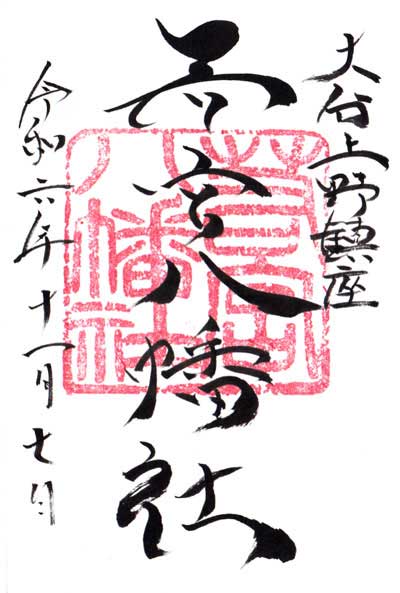 大谷上野鎮座
若宮八幡社
令和六年十一月七日
若宮
八幡社